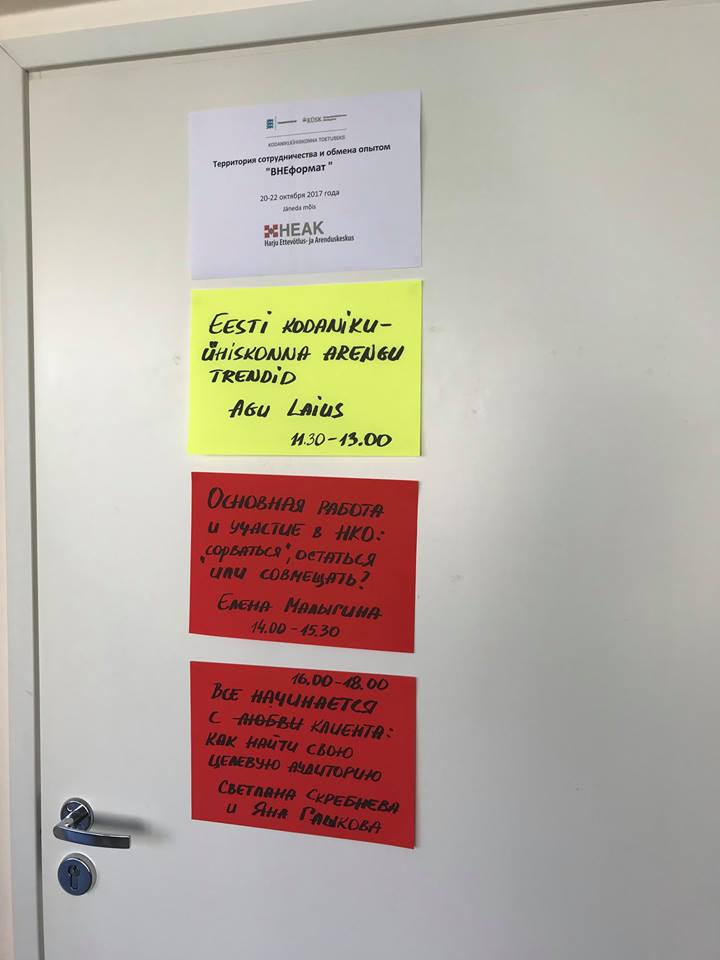 KÜSK
KODANIKUÜHISKONNA TOETUSEKS
Территория сотрудничества и обмена опытом
"ВНЕформат "
20-22 октября 2017 года
Jäneda mõis
HEAK
Harju Ettevõtlus- ja Arenduskeskus
EESTI KODANIKU-
ÜHISKONNA ARENGU
TRENDID
AGU LAIUS
11.30-13.00
ОСНОВНАЯ РАБОТА
И УЧАСТИЕ В НКО:
"СОРВАТЬСЯ", ОСТАТЬСЯ
ИЛИ СОВМЕЩАТЬ?
ЕЛЕНА МАЛЫГИНА
14.00-15.30
16.00-18.00
ВСЕ НАЧИНАЕТСЯ
С ЛЮБВИ КЛИЕНТА:
КАК НАЙТИ СВОЮ
ЦЕЛЕВУЮ АУДИТОРИЮ
СВЕТЛАНА СКРЕБНЕВА
И ЯНА ГАШКОВА